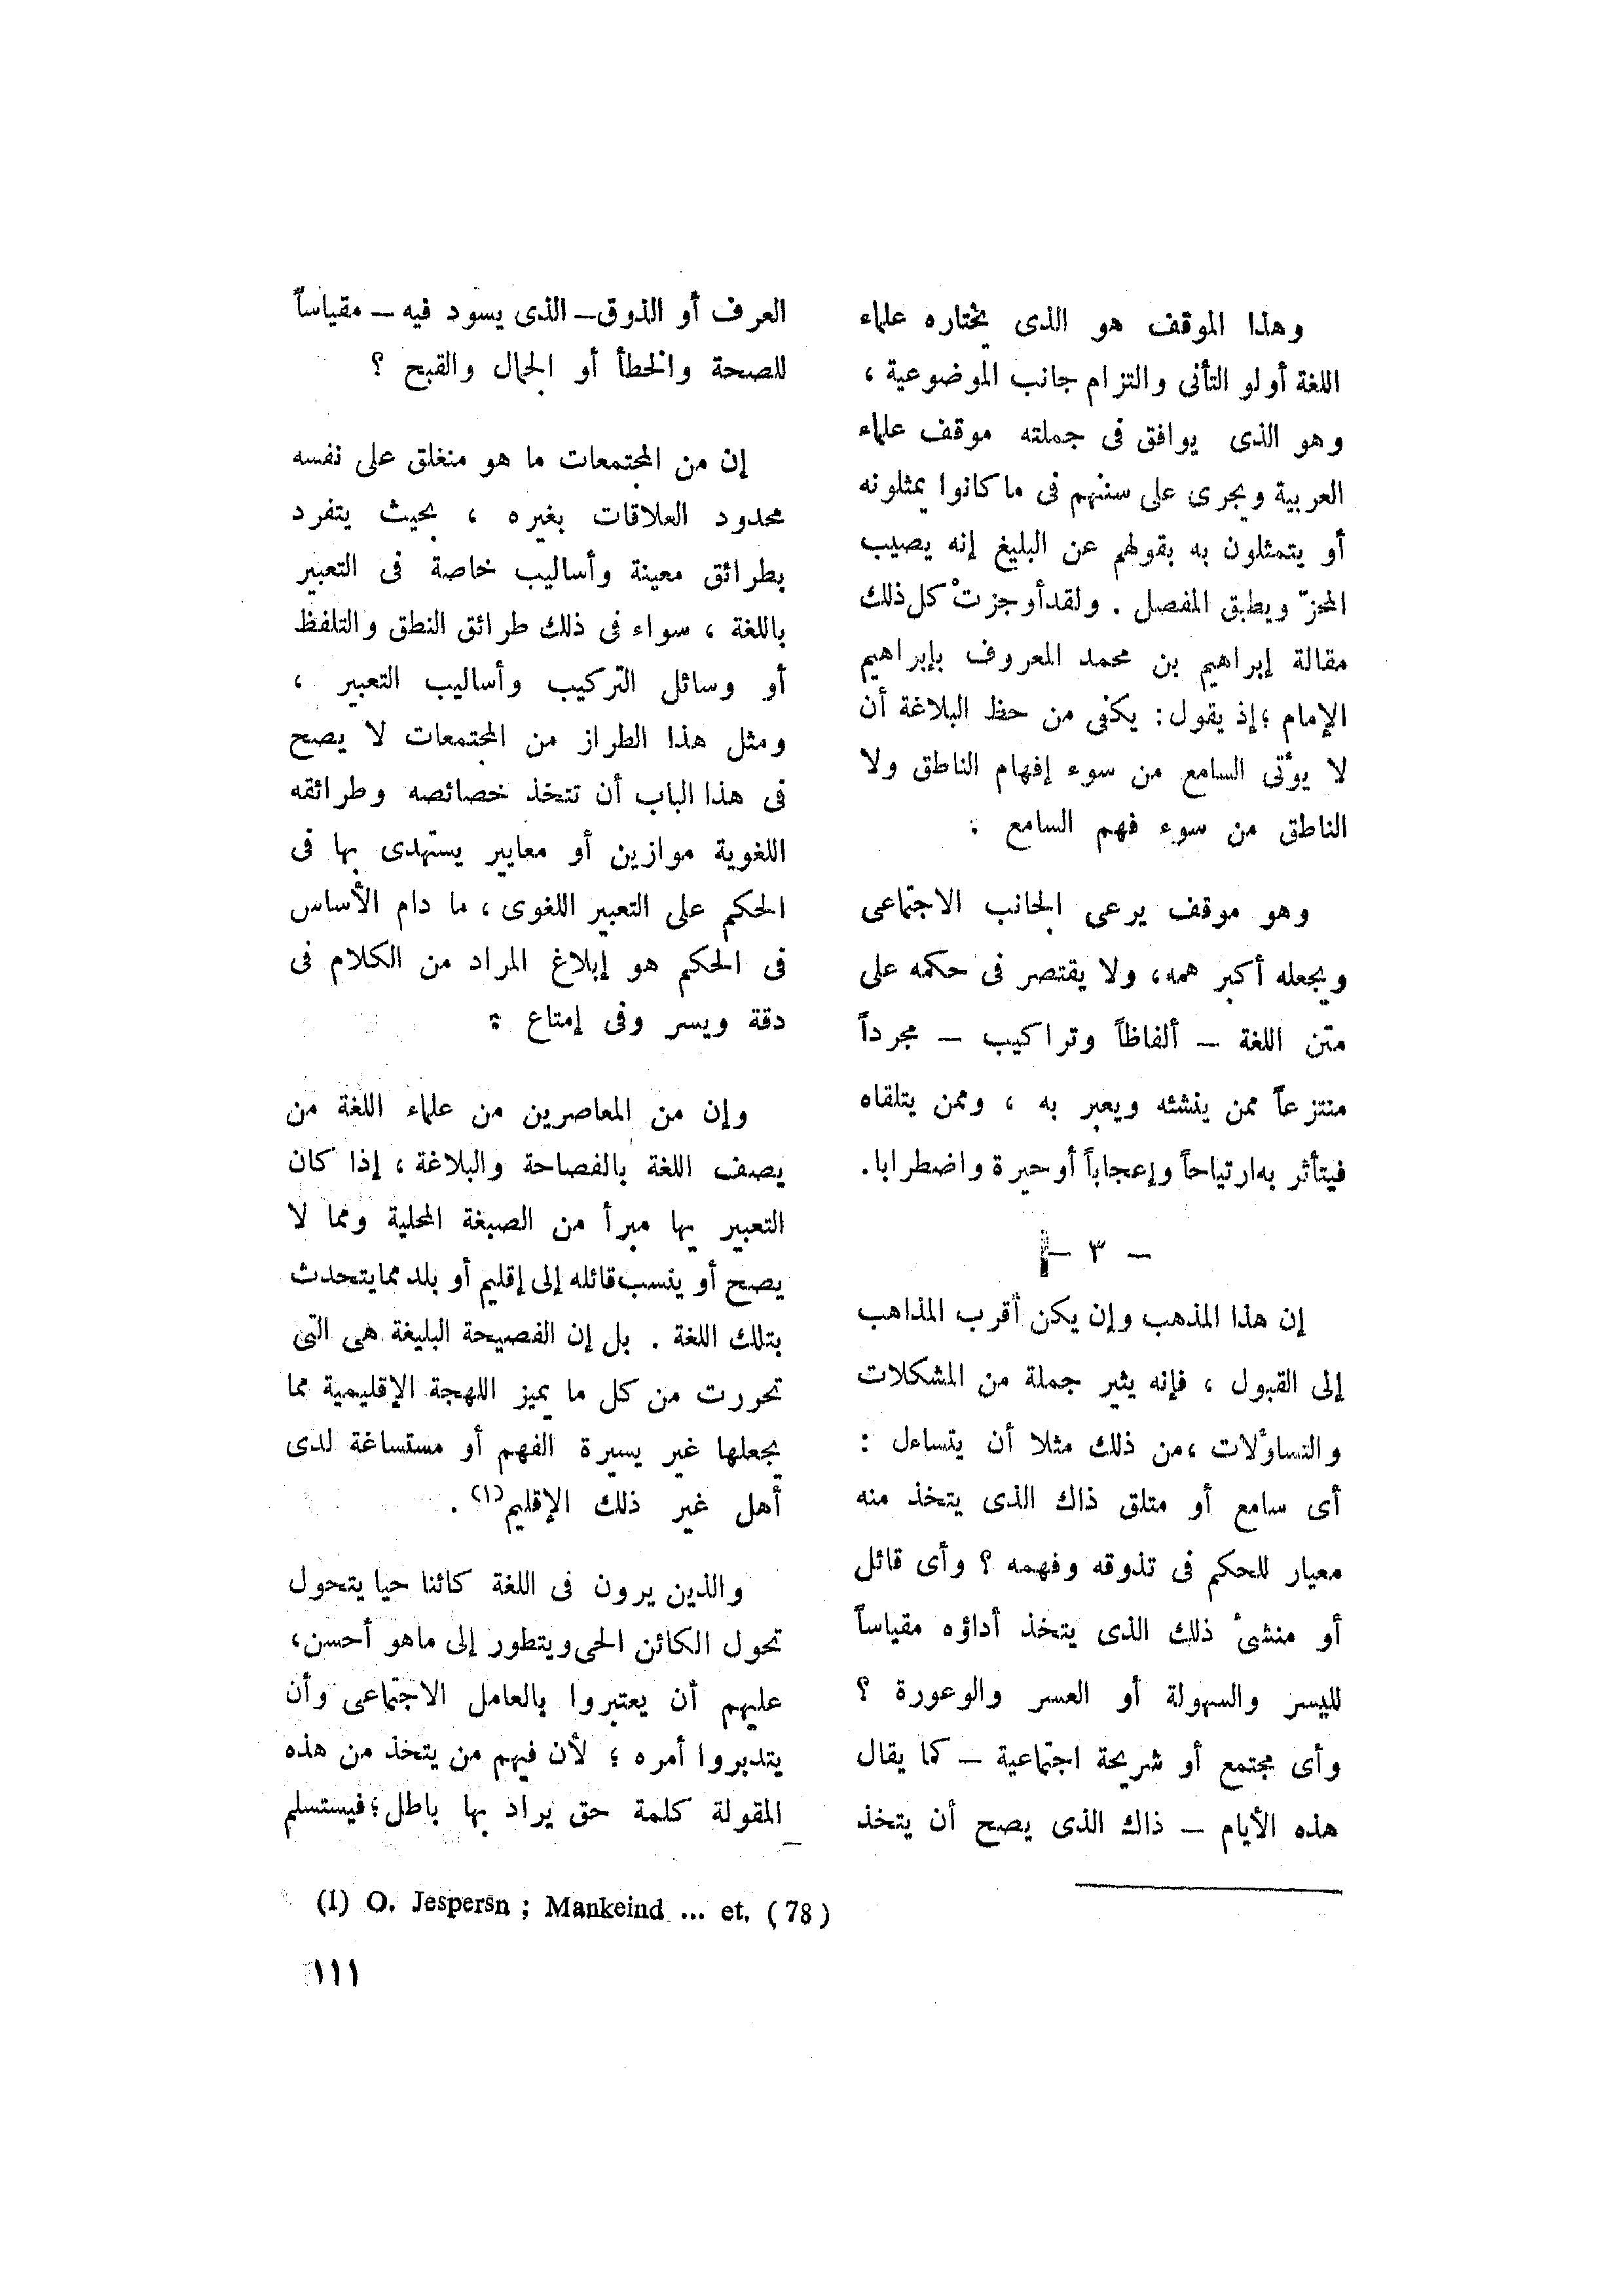 وهذا الموقف هو الذى يختاره علماء
اللغة أولو التأنى والتزام جانب الموضوعية ،
وهو الذى يوافق فى جملته موقف علماء
العربية ويجرى على سننهم فى ما كانوا يمثلونه
أو يتمثلون به بقولهم عن البليغ إنه يصيب
المحزّ ويطبق المفصل . ولقد أوجزتْ كل ذلك
مقالة إبراهيم بن محمد المعروف بإبراهيم
الإمام ؛ إذ يقول : يكفى من حظ البلاغة أن
لا يؤتى السامع من سوء إفهام الناطق ولا
الناطق من سوء فهم السامع :
وهو موقف يرعى الجانب الاجتماعى
ويجعله أكبر همه ، ولا يقتصر فى حكمه على
متن اللغة – ألفاظاً وتراكيب – مجرداً
منتزعاً ممن ينشئه ويعبر به ، وممن يتلقاه
فيتأثر به ارتياحاً وإعجاباً أو حيرة واضطرابا .
– ٣ –
إن هذا المذهب وإن يكن أقرب المذاهب
إلى القبول ، فإنه يثير جملة من المشكلات
والتساؤلات ، من ذلك مثلا أن يتساءل :
أى سامع أو متلق ذاك الذى يتخذ منه
معيار للحكم فى تذوقه وفهمه ؟ وأى قائل
أو منشىٔ ذلك الذى يتخذ أداؤه مقياساً
لليسر والسهولة أو العسر والوعورة ؟
وأى مجتمع أو شريحة اجتماعية – كما يقال
هذه الأيام – ذاك الذى يصح أن يتخذ
العرف أو الذوق – الذى يسود فيه – مقياساً
للصحة والخطأ أو الجمال والقبح ؟
إن من المجتمعات ما هو منغلق على نفسه
محدود العلاقات بغيره ، بحيث يتفرد
بطرائق معينة وأساليب خاصة فى التعبير
باللغة ، سواء فى ذلك طرائق النطق والتلفظ
أو وسائل التركيب وأساليب التعبير ،
ومثل هذا الطراز من المجتمعات لا يصح
فى هذا الباب أن تتخذ خصائصه وطرائقه
اللغوية موازين أو معايير يستهدى بها فى
الحكم على التعبير اللغوى ، ما دام الأساس
فى الحكم هو إبلاغ المراد من الكلام فى
دقة ويسر وفى إمتاع :
وإن من المعاصرين من علماء اللغة من
يصف اللغة بالفصاحة والبلاغة ، إذا كان
التعبير بها مبرأ من الصبغة المحلية ومما لا
يصح أو ينسب قائله إلى إقليم أو بلد مما يتحدث
بتلك اللغة . بل إن الفصيحة البليغة هى التى
تحررت من كل ما يميز اللهجة الإقليمية مما
يجعلها غير يسيرة الفهم أو مستساغة لدى
أهل غير ذلك الإقليم (١) .
والذين يرون فى اللغة كائنا حيا يتحول
تحول الكائن الحى ويتطور إلى ما هو أحسن ،
عليهم أن يعتبروا بالعامل الاجتماعى وأن
يتدبروا أمره ؛ لأن فيهم من يتخذ من هذه
المقولة كلمة حق يراد بها باطل ؛ فيستسلم
(1) O. Jespersn ; Mankeind ... et. (78)
١١١